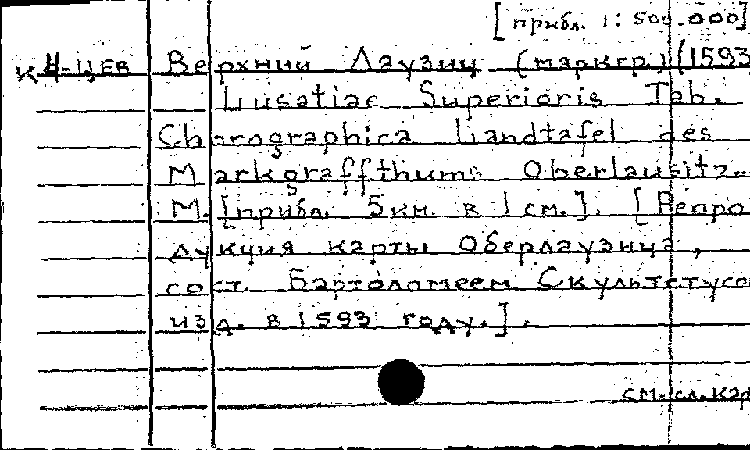 [прибл. 1:500.000]
К Н-ЦЕВ Верхний Лаузиц (маркгр.) (1593
Lusatiae Superioris Tab.
Chorographica Landtafel des
Markgraffthums Oberlausitz..
М. [прибл. 5 км. в 1 см.]. [Репро
дукция карты Оберлаузица,
сост. Бартоломеем Скультетусо
изд. в 1593 году.].
см. сл. кар